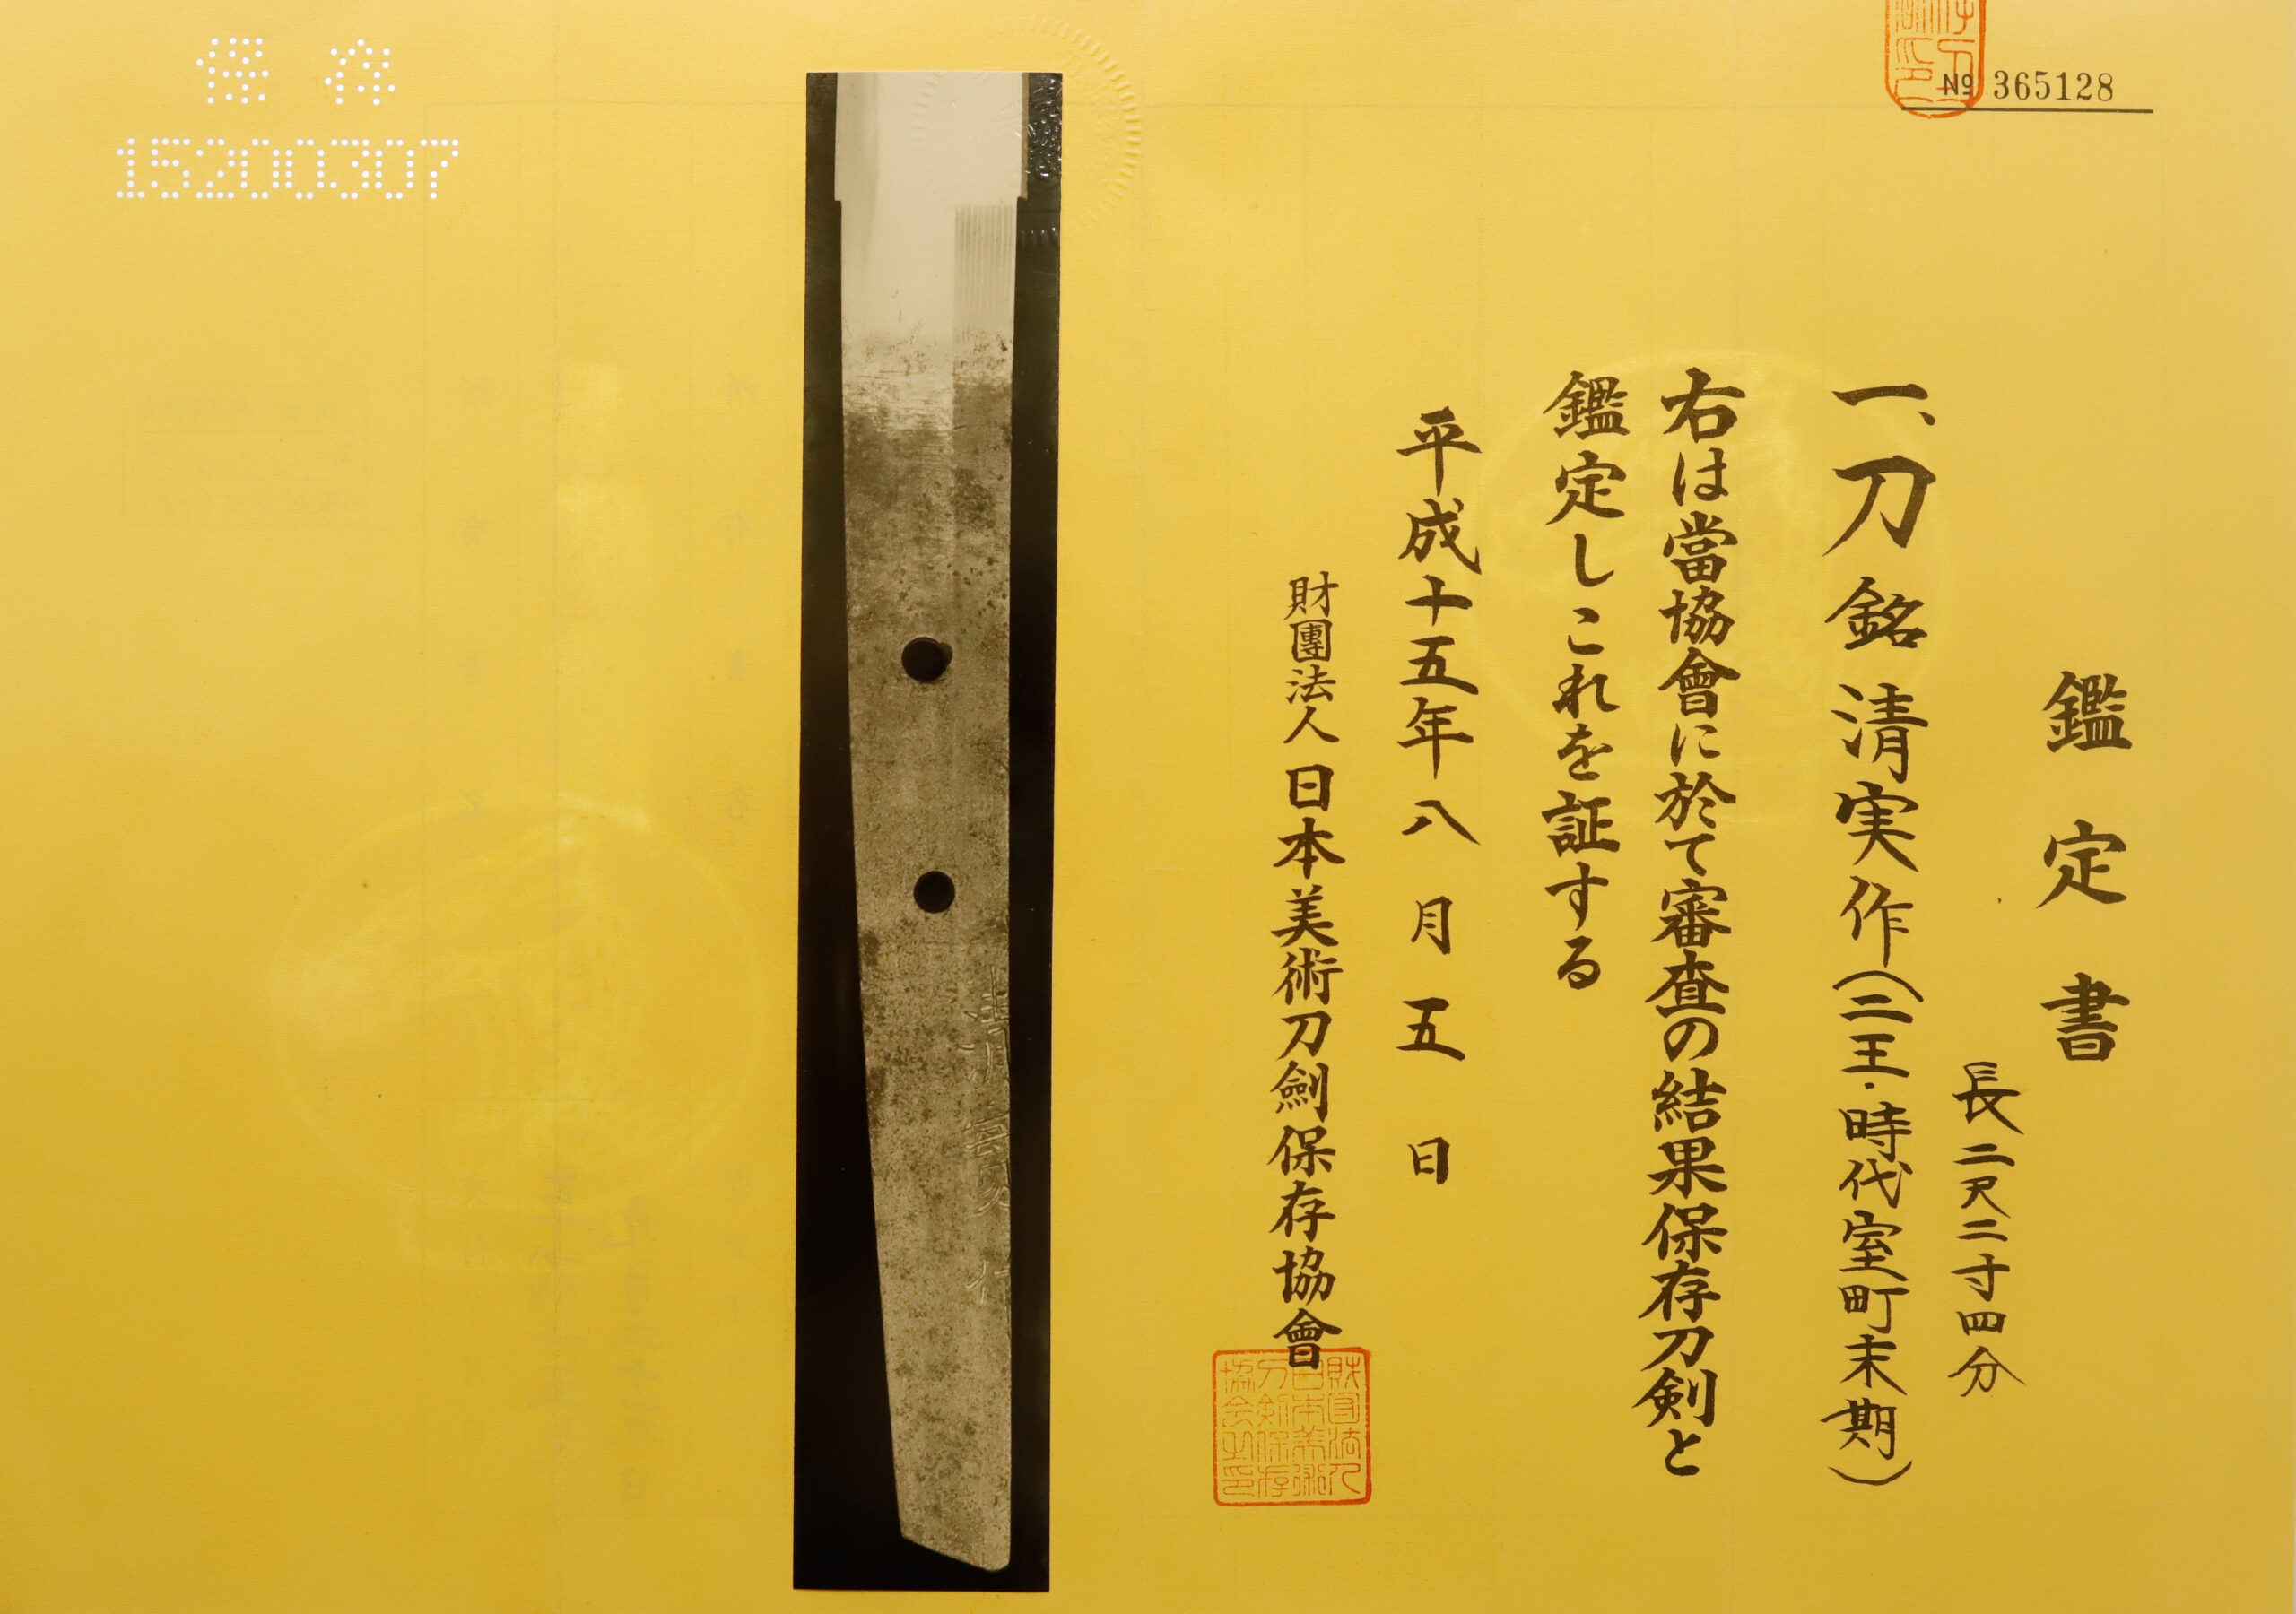 No 365128
鑑定書
長二尺二寸四分
一、刀 銘 清実作(二王・時代室町末期)
右は當協會に於て審査の結果保存刀剣と
鑑定しこれを証する
平成十五年八月五日
財團法人 日本美術刀劍保存協會
財団法人
日本美術
刀剣保存
協会之印
清實作
保存
15200307